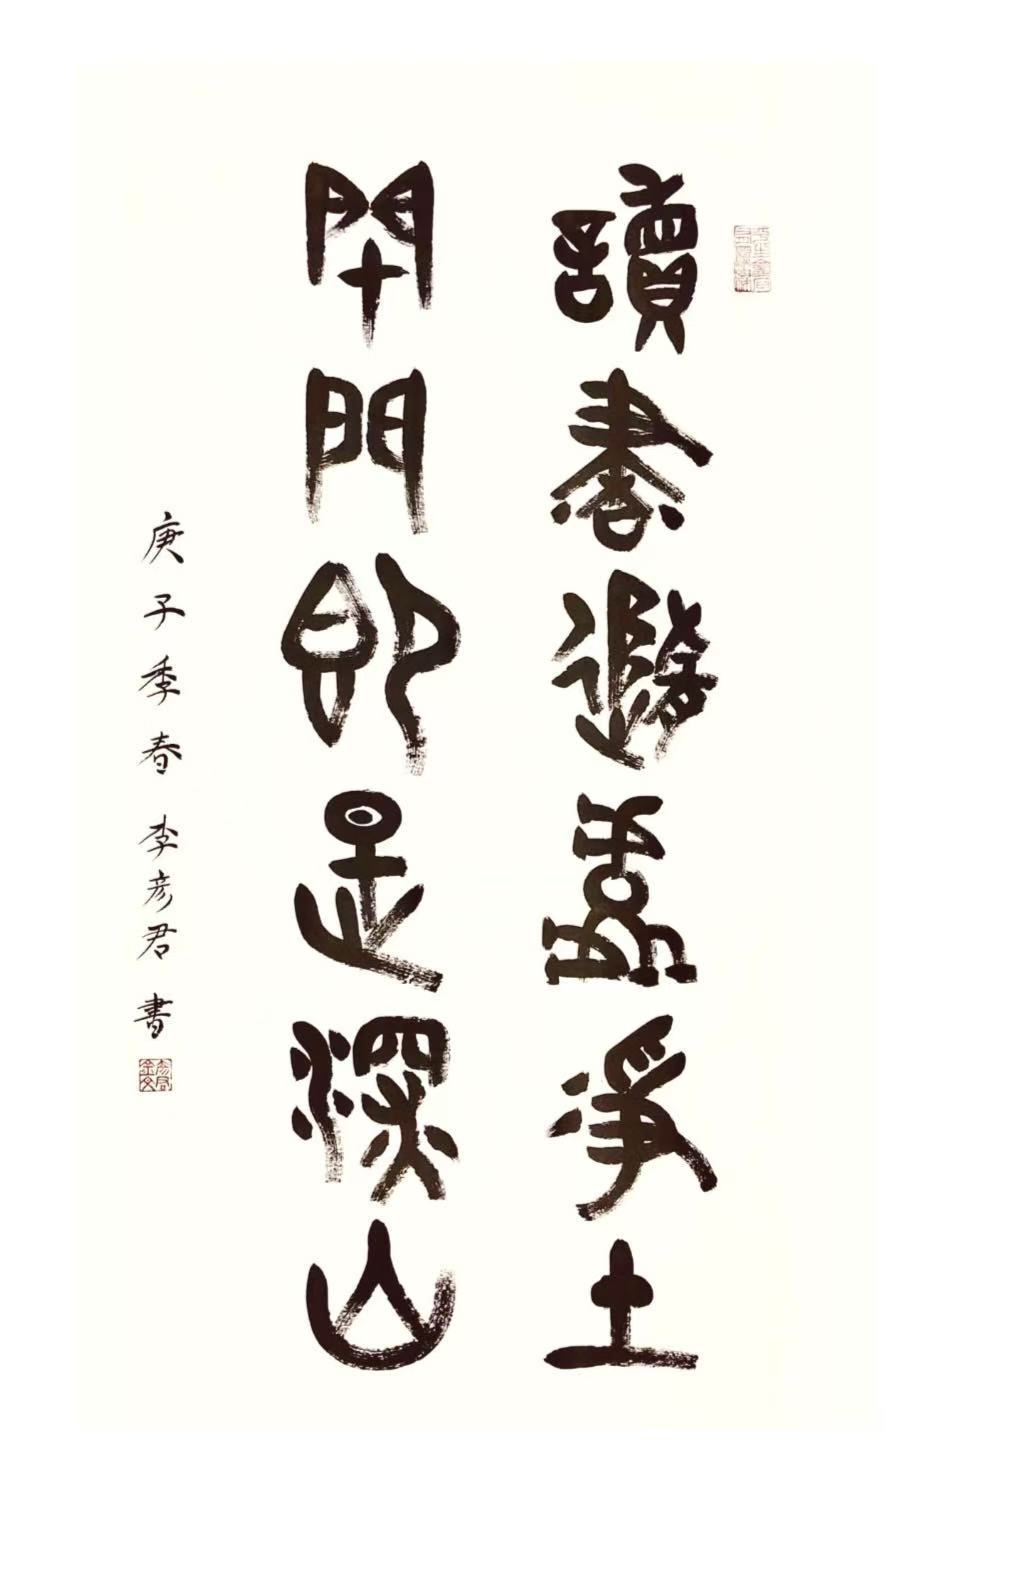 讀書隨處淨土
閉門即是深山
庚子季春 李彦君 書